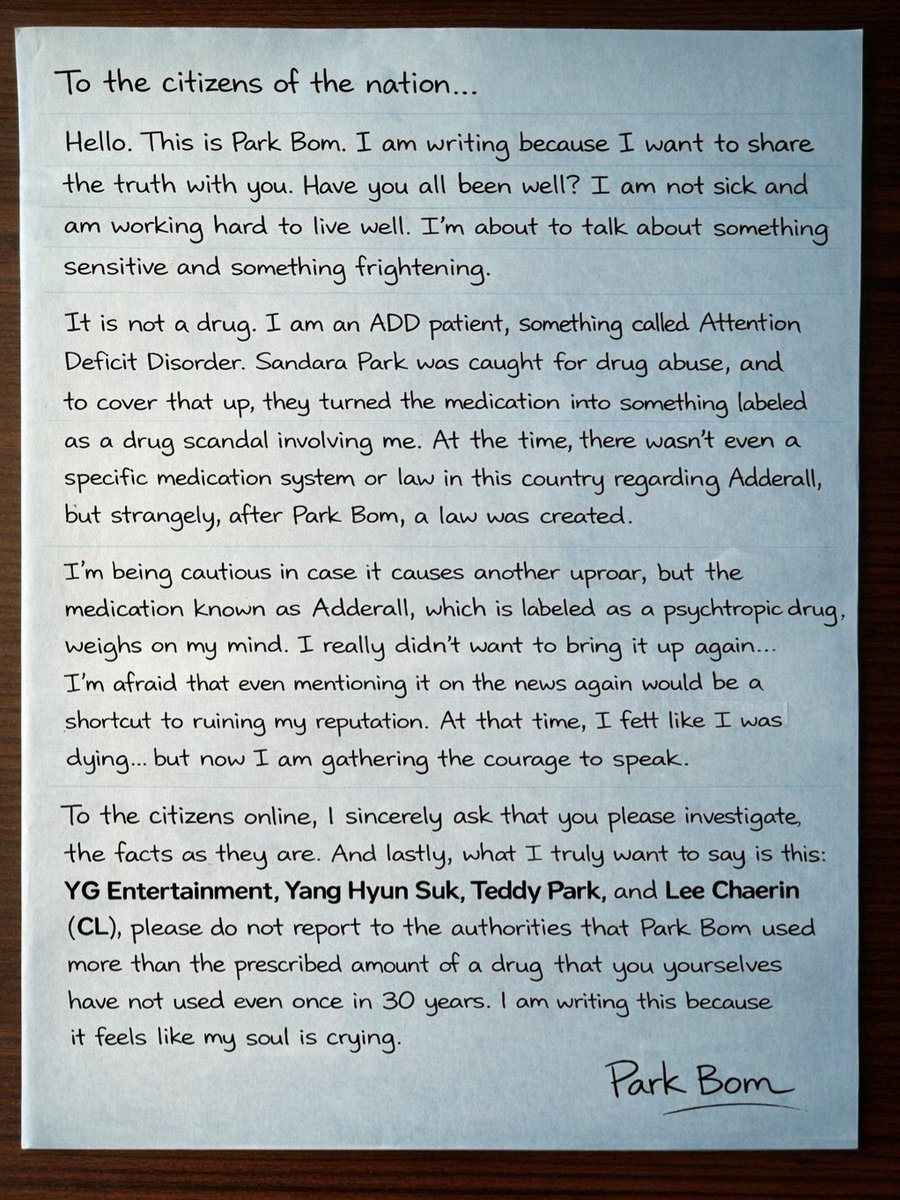 To the citizens of the nation...
Hello. This is Park Bom. I am writing because I want to share
the truth with you. Have you all been well? I am not sick and
am working hard to live well. I'm about to talk about something
sensitive and something frightening.
It is not a drug. I am an ADD patient, something called Attention
Deficit Disorder. Sandara Park was caught for drug abuse, and
to cover that up, they turned the medication into something labeled
as a drug scandal involving me. At the time, there wasn't even a
specific medication system or law in this country regarding Adderall,
but strangely, after Park Bom, a law was created.
I'm being cautious in case it causes another uproar, but the
medication known as Adderall, which is labeled as a psychtropic drug,
weighs on my mind. I really didn't want to bring it up again...
I'm afraid that even mentioning it on the news again would be a
shortcut to ruining my reputation. At that time, I fett like I was
dying... but now I am gathering the courage to speak.
To the citizens online, I sincerely ask that you please investigate,
the facts as they are. And lastly, what I truly want to say is this:
YG Entertainment, Yang Hyun Suk, Teddy Park, and Lee Chaerin
(CL), please do not report to the authorities that Park Bom used
more than the prescribed amount of a drug that you yourselves
have not used even once in 30 years. I am writing this because
it feels like my soul is crying.
Park Bom